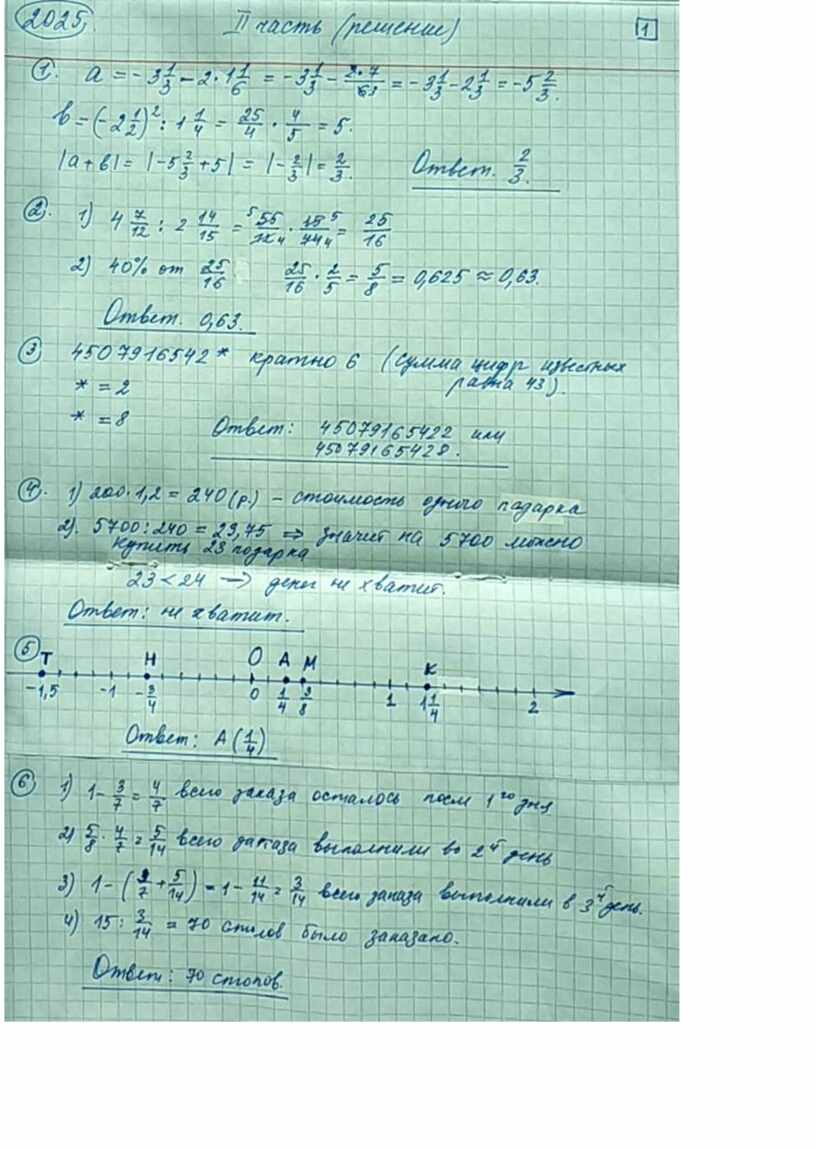 2025. II часть (решение) 1
1. a = -3 1/3 - 2·1 1/6 = -3 1/3 - 2·7/63 = -3 1/3 - 2 1/3 = -5 2/3.
b = (-2 1/2)² : 1 1/4 = 25/4 · 4/5 = 5.
|a+b| = |-5 2/3 + 5| = |-2/3| = 2/3. Ответ. 2/3.
2. 1) 4 7/12 : 2 14/15 = 55/12 · 15/44 = 25/16
2) 40% от 25/16 25/16 · 2/5 = 5/8 = 0,625 ≈ 0,63.
Ответ. 0,63.
3 4507916542* кратно 6 (сумма цифр известных
* = 2 равна 43).
* = 8 Ответ: 45079165422 или
45079165428.
4. 1) 200·1,2 = 240 (р.) – стоимость одного подарка
2). 5700:240 = 23,75 ⇒ значит на 5700 можно
купить 23 подарка
23 < 24 → денег не хватит.
Ответ: не хватит.
5 T H O A M K
-1,5 -1 -3/4 0 1/4 3/8 1 1 1/4 2
Ответ: A(1/4)
6 1) 1 - 3/7 = 4/7 всего заказа осталось после 1го дня
2) 5/8 · 4/7 = 5/14 всего заказа выполнили во 2й день
3) 1 - (3/7 + 5/14) = 1 - 11/14 = 3/14 всего заказа выполнили в 3й день.
4) 15 : 3/14 = 70 столов было заказано.
Ответ: 70 столов.